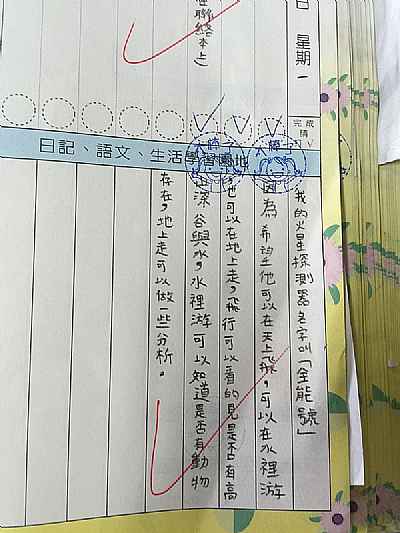 日 星期一
在聯絡本上)
完成
請打V
日記、語文、生活學習園地
我的火星探測器名字叫「全能號」
因為希望他可以在天上飛,可以在水裡游
也可以在地上走,飛行可以看的見是否有高
山深谷與水,水裡游可以知道是否有動物
存在,地上走可以做一些分析。